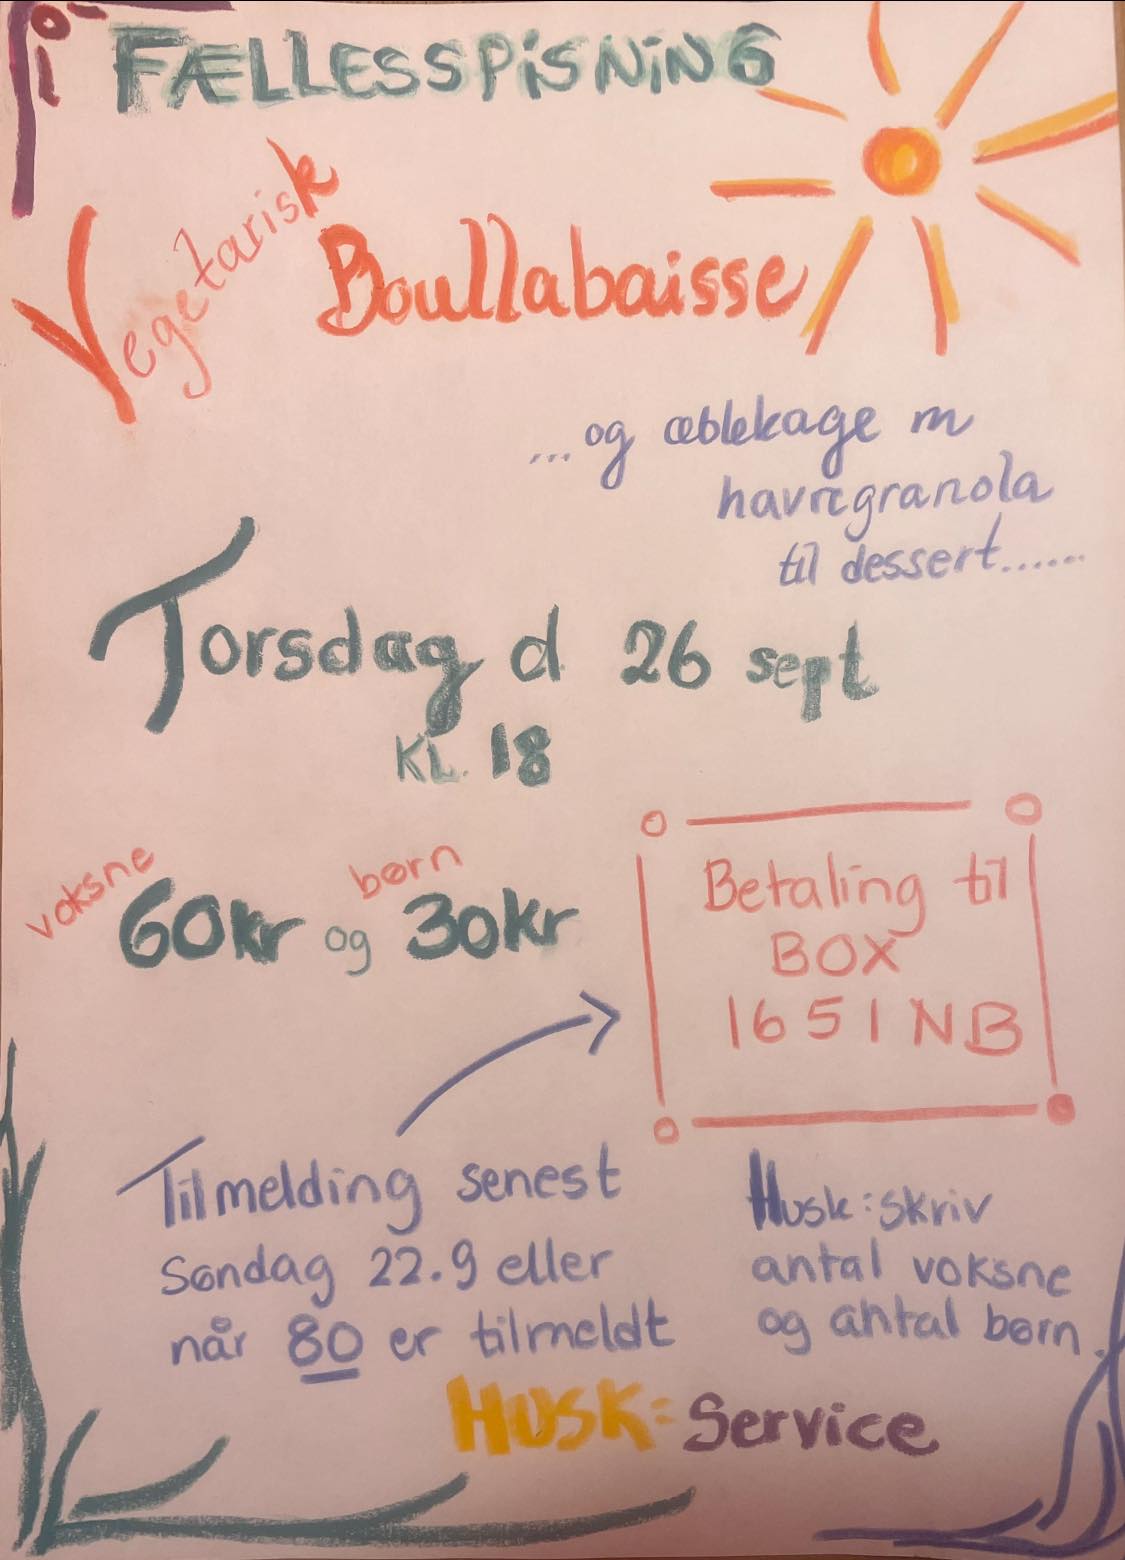 FÆLLESSPISNING
Vegetarisk
Boullabaisse
...og æblekage m
havregranola
til dessert......
Torsdag d 26 sept
KL. 18
voksne børn
60kr og 30kr
Betaling til
BOX
1651NB
Tilmelding senest
Søndag 22.9 eller
når 80 er tilmeldt
Husk: skriv
antal voksne
og antal børn.
HUSK: Service